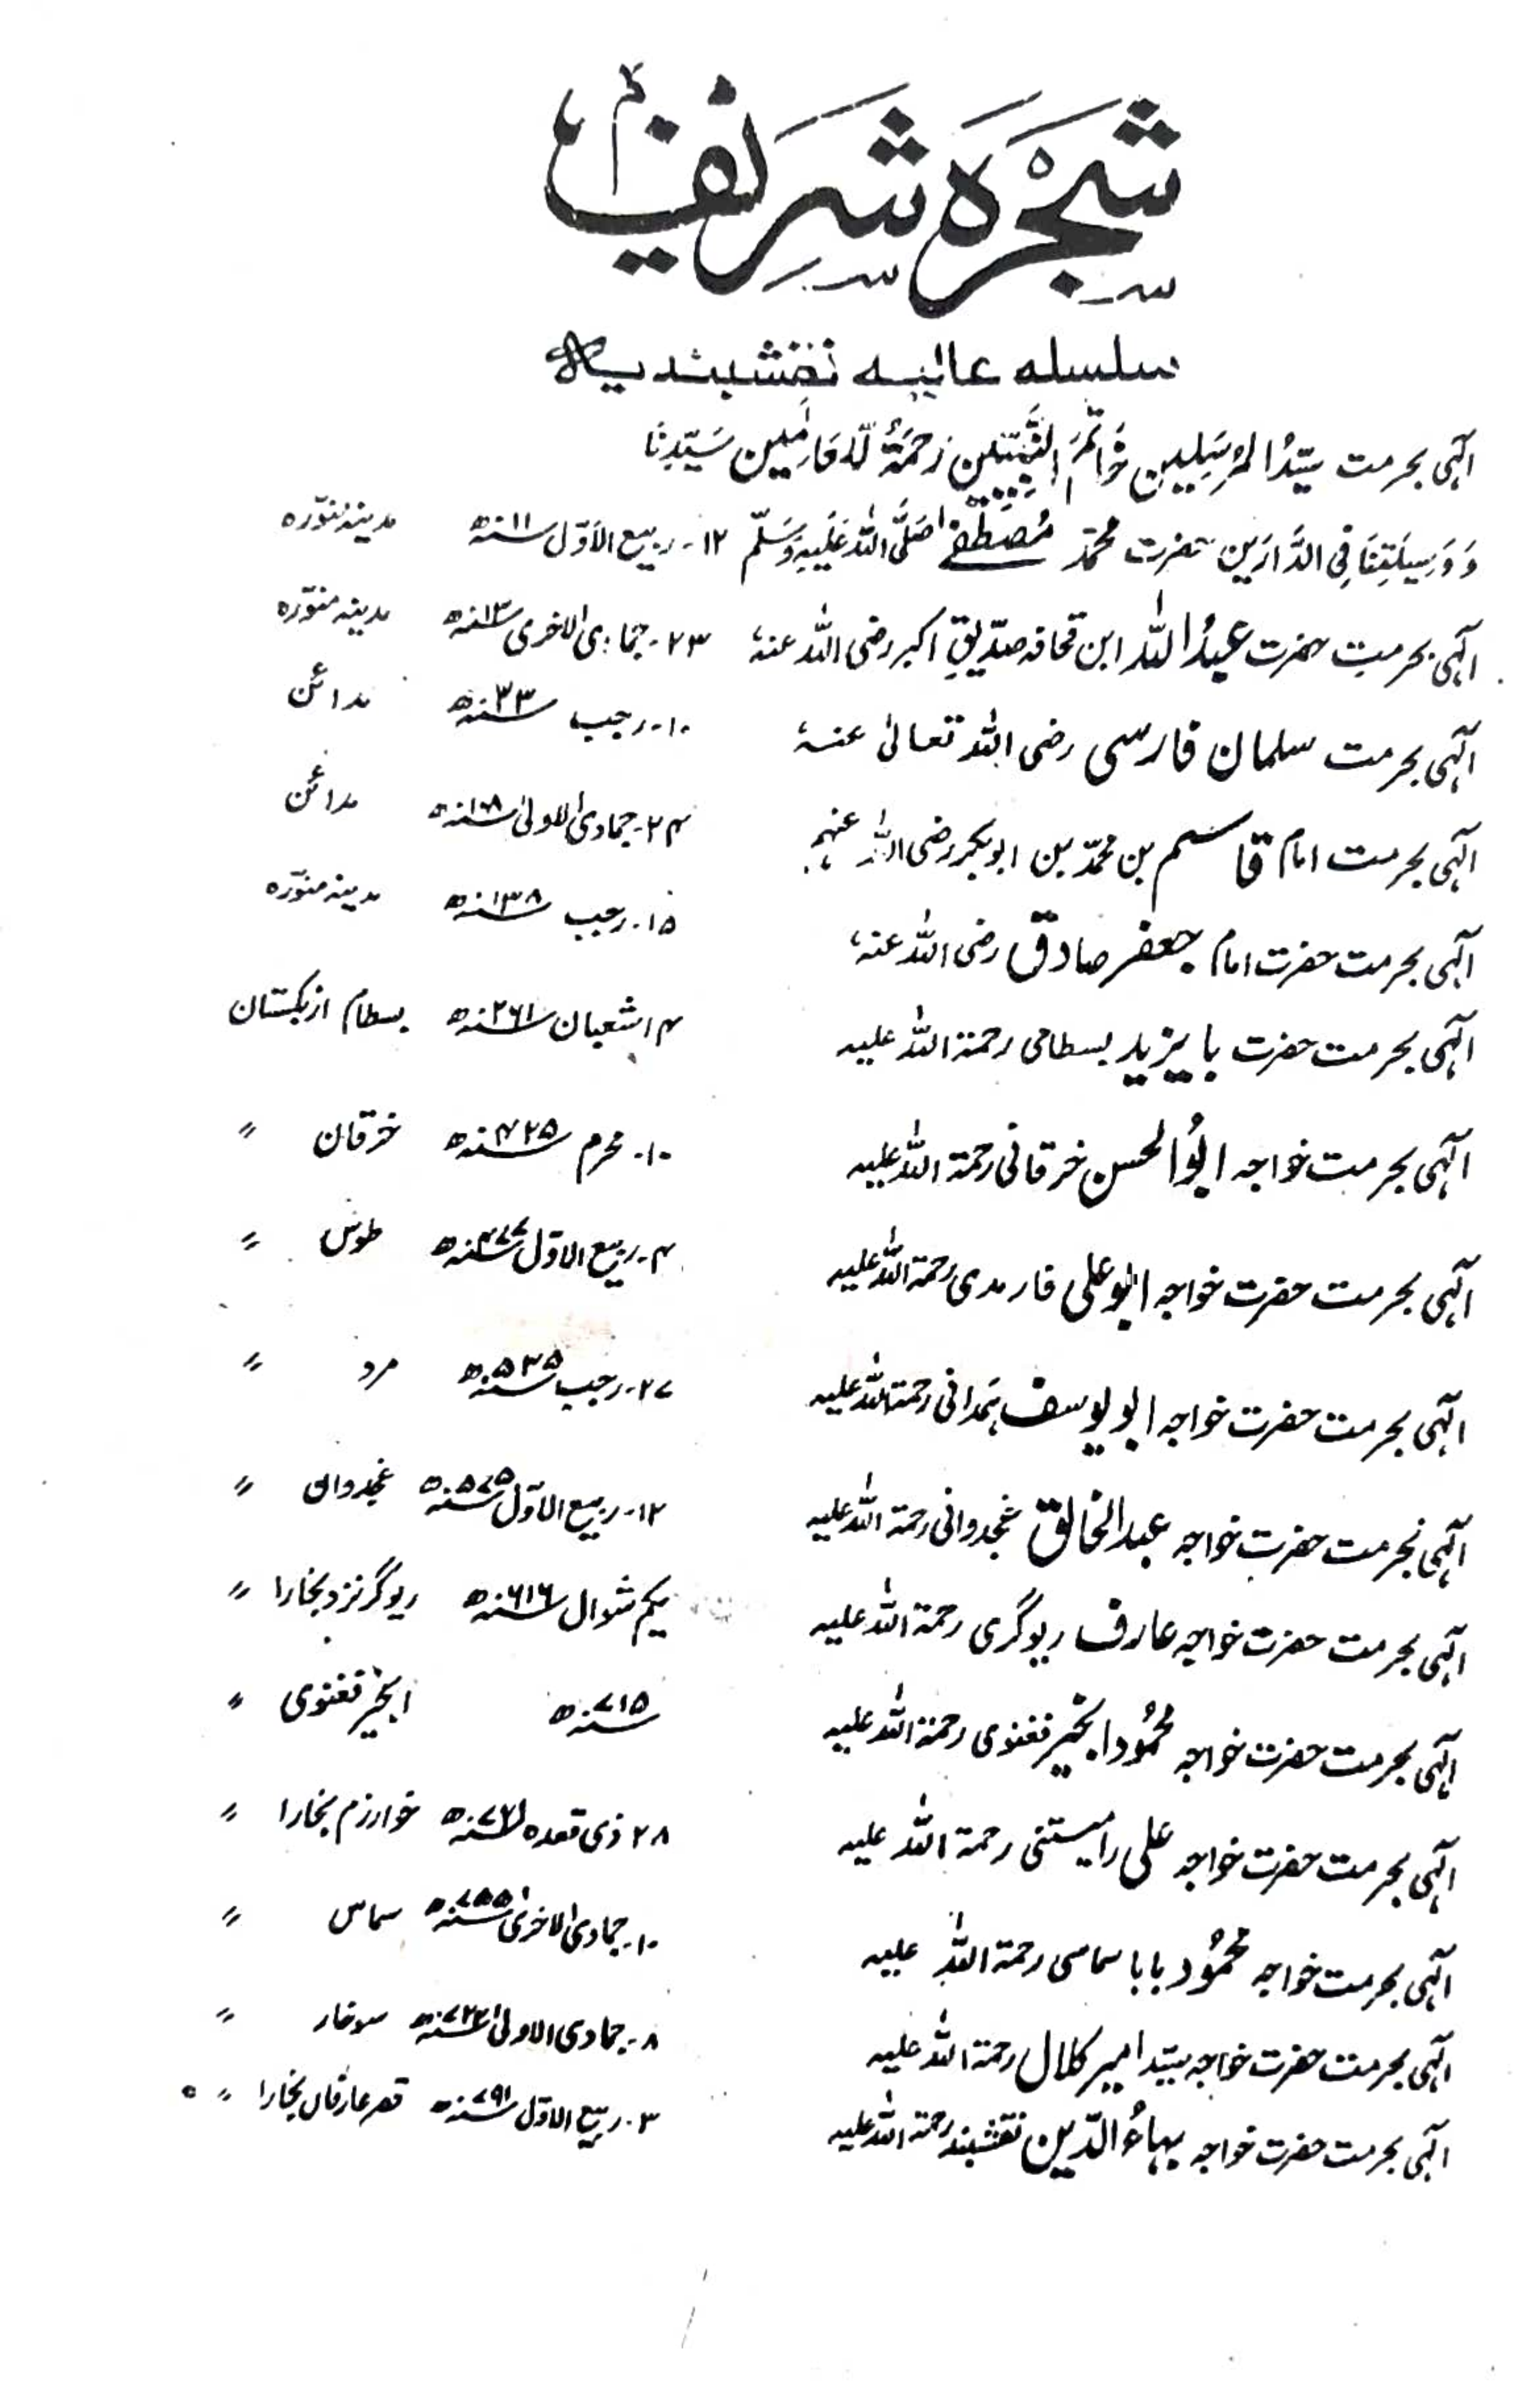 شجرہ شریف
سلسلہ عالیہ نقشبندیہ
الٰہی بحرمت سیّدُ المُرسَلِین خَاتَمَ النَّبِیّٖن رَحمَۃُ لّلعَالَمِین سَیّدِنَا
وَ وَسِیلَتِنَا فِی الدَّارَین حضرت محمّد مُصطَفٰے صَلَّی اللہُ عَلَیہِ وَسَلَّم ۱۲۔ ربیع الاوّل سنہ ۱۱ھ مدینہ منوّرہ
الٰہی بحرمت حضرت عبدُ اللہ ابن قحافہ صدّیقِ اکبر رضی اللہ عنہٗ ۲۳۔ جمادی الاخریٰ سنہ ۱۳ھ مدینہ منوّرہ
الٰہی بحرمت سلمان فارسی رضی اللہ تعالیٰ عنہٗ ۱۰۔ رجب سنہ ۳۳ھ مدائن
الٰہی بحرمت امام قاسم بن محمّد بن ابوبکر رضی اللہ عنہم ۲۴۔ جمادی الاولیٰ سنہ ۱۰۸ھ مدائن
الٰہی بحرمت حضرت امام جعفر صادق رضی اللہ عنہٗ ۱۵۔ رجب سنہ ۱۳۸ھ مدینہ منوّرہ
الٰہی بحرمت حضرت بایزید بسطامی رحمۃ اللہ علیہ ۱۴ شعبان سنہ ۲۶۱ھ بسطام ازبکستان
الٰہی بحرمت خواجہ ابُوالحسن خرقانی رحمۃ اللہ علیہ ۱۰۔ محرم سنہ ۴۲۵ھ خرقان 〃
الٰہی بحرمت حضرت خواجہ ابوعلی فارمدی رحمۃ اللہ علیہ ۴۔ ربیع الاوّل سنہ ۴۷۷ھ طوس 〃
الٰہی بحرمت حضرت خواجہ ابویوسف ہمدانی رحمۃ اللہ علیہ ۲۷۔ رجب سنہ ۵۳۵ھ مرو 〃
الٰہی بحرمت حضرت خواجہ عبدالخالق غجدوانی رحمۃ اللہ علیہ ۱۲۔ ربیع الاوّل سنہ ۵۷۵ھ غجدوان 〃
الٰہی بحرمت حضرت خواجہ عارف ریوگری رحمۃ اللہ علیہ یکم شوال سنہ ۶۱۶ھ ریوگر نزد بخارا 〃
الٰہی بحرمت حضرت خواجہ محمُود انجیر فغنوی رحمۃ اللہ علیہ سنہ ۷۱۵ھ انجیر فغنوی 〃
الٰہی بحرمت حضرت خواجہ علی رامیتنی رحمۃ اللہ علیہ ۲۸ ذی قعدہ سنہ ۷۲۱ھ خوارزم بخارا 〃
الٰہی بحرمت خواجہ محمُود بابا سماسی رحمۃ اللہ علیہ ۱۰۔ جمادی الاخریٰ سنہ ۷۵۵ھ سماس 〃
الٰہی بحرمت حضرت خواجہ سیّد امیر کلال رحمۃ اللہ علیہ ۸۔ جمادی الاولیٰ سنہ ۷۷۲ھ سوخار 〃
الٰہی بحرمت حضرت خواجہ بہاءُ الدّین نقشبند رحمۃ اللہ علیہ ۳۔ ربیع الاوّل سنہ ۷۹۱ھ قصر عارفاں بخارا 〃